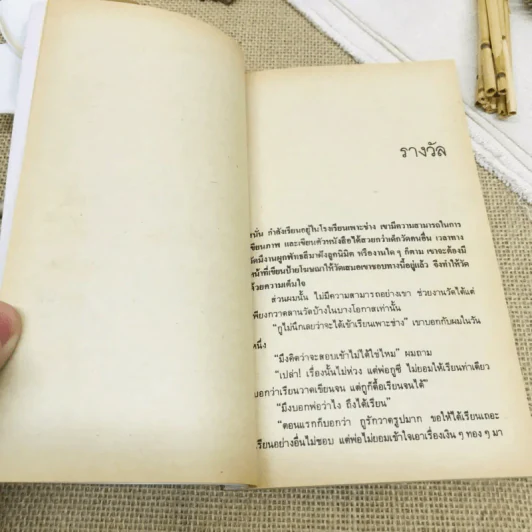 รางวัล
นัน กำลังเรียนอยู่ในโรงเรียนเพาะช่าง เขามีความสามารถในการ
เขียนภาพ และเขียนตัวหนังสือได้สวยกว่าเด็กวัดคนอื่น เวลาทาง
วัดมีงานผูกพัทธสีมาฝังลูกนิมิต หรืองานใด ๆ ก็ตาม เขาจะต้องมี
หน้าที่เขียนป้ายโฆษณาให้วัดเสมอ เขาชอบทางนี้อยู่แล้ว จึงทำให้วัด
ด้วยความเต็มใจ
ส่วนผมนั้น ไม่มีความสามารถอย่างเขา ช่วยงานวัดได้แต่
เพียงกวาดลานวัดบ้างในบางโอกาสเท่านั้น
“กูไม่นึกเลยว่าจะได้เข้าเรียนเพาะช่าง” เขาบอกกับผมในวัน
หนึ่ง
“มึงคิดว่าจะสอบเข้าไม่ได้ใช่ไหม” ผมถาม
“เปล่า! เรื่องนั้นไม่ห่วง แต่พ่อกูซี ไม่ยอมให้เรียนท่าเดียว
บอกว่าเรียนวาดเขียนจน แต่กูก็ดื้อเรียนจนได้”
“มึงบอกพ่อว่าไง ถึงได้เรียน”
“ตอนแรกก็บอกว่า กูรักวาดรูปมาก ขอให้ได้เรียนเถอะ
เรียนอย่างอื่นไม่ชอบ แต่พ่อไม่ยอมเข้าใจเอาเรื่องเงิน ๆ ทอง ๆ มา